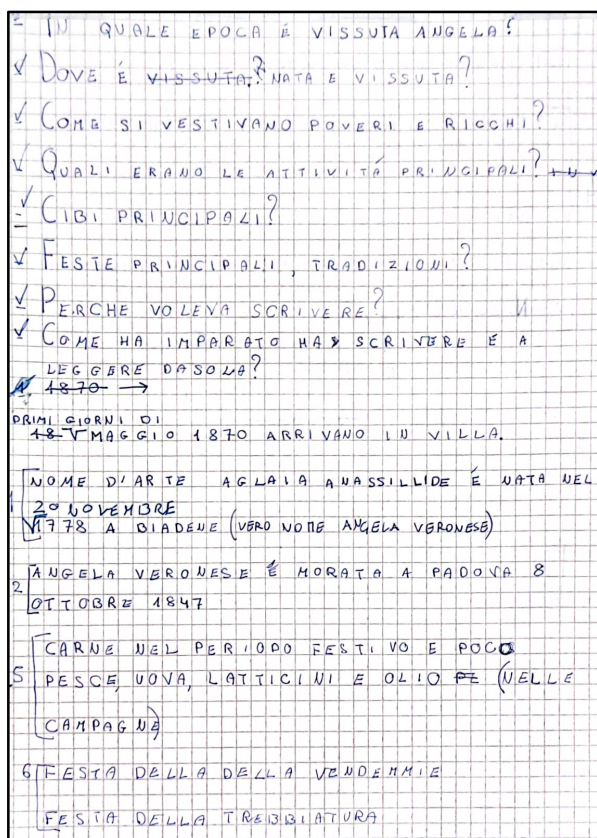 - IN QUALE EPOCA É VISSUTA ANGELA?
√ DOVE É VISSUTA? NATA E VISSUTA?
√ COME SI VESTIVANO POVERI E RICCHI?
√ QUALI ERANO LE ATTIVITÁ PRINCIPALI?
√ CIBI PRINCIPALI?
√ FESTE PRINCIPALI, TRADIZIONI?
√ PERCHE VOLEVA SCRIVERE?
√ COME HA IMPARATO HA SCRIVERE E A
LEGGERE DA SOLA?
1870 →
PRIMI GIORNI DI
18 MAGGIO 1870 ARRIVANO IN VILLA.
1 NOME D'ARTE AGLAIA ANASSILLIDE É NATA NEL
20 NOVEMBRE
1778 A BIADENE (VERO NOME ANGELA VERONESE)
2 ANGELA VERONESE É MORATA A PADOVA 8
OTTOBRE 1847
5 CARNE NEL PERIODO FESTIVO E POCO
PESCE, UOVA, LATTICINI E OLIO PE (NELLE
CAMPAGNE)
6 FESTA DELLA DELLA VENDEMMIE
FESTA DELLA TREBBIATURA